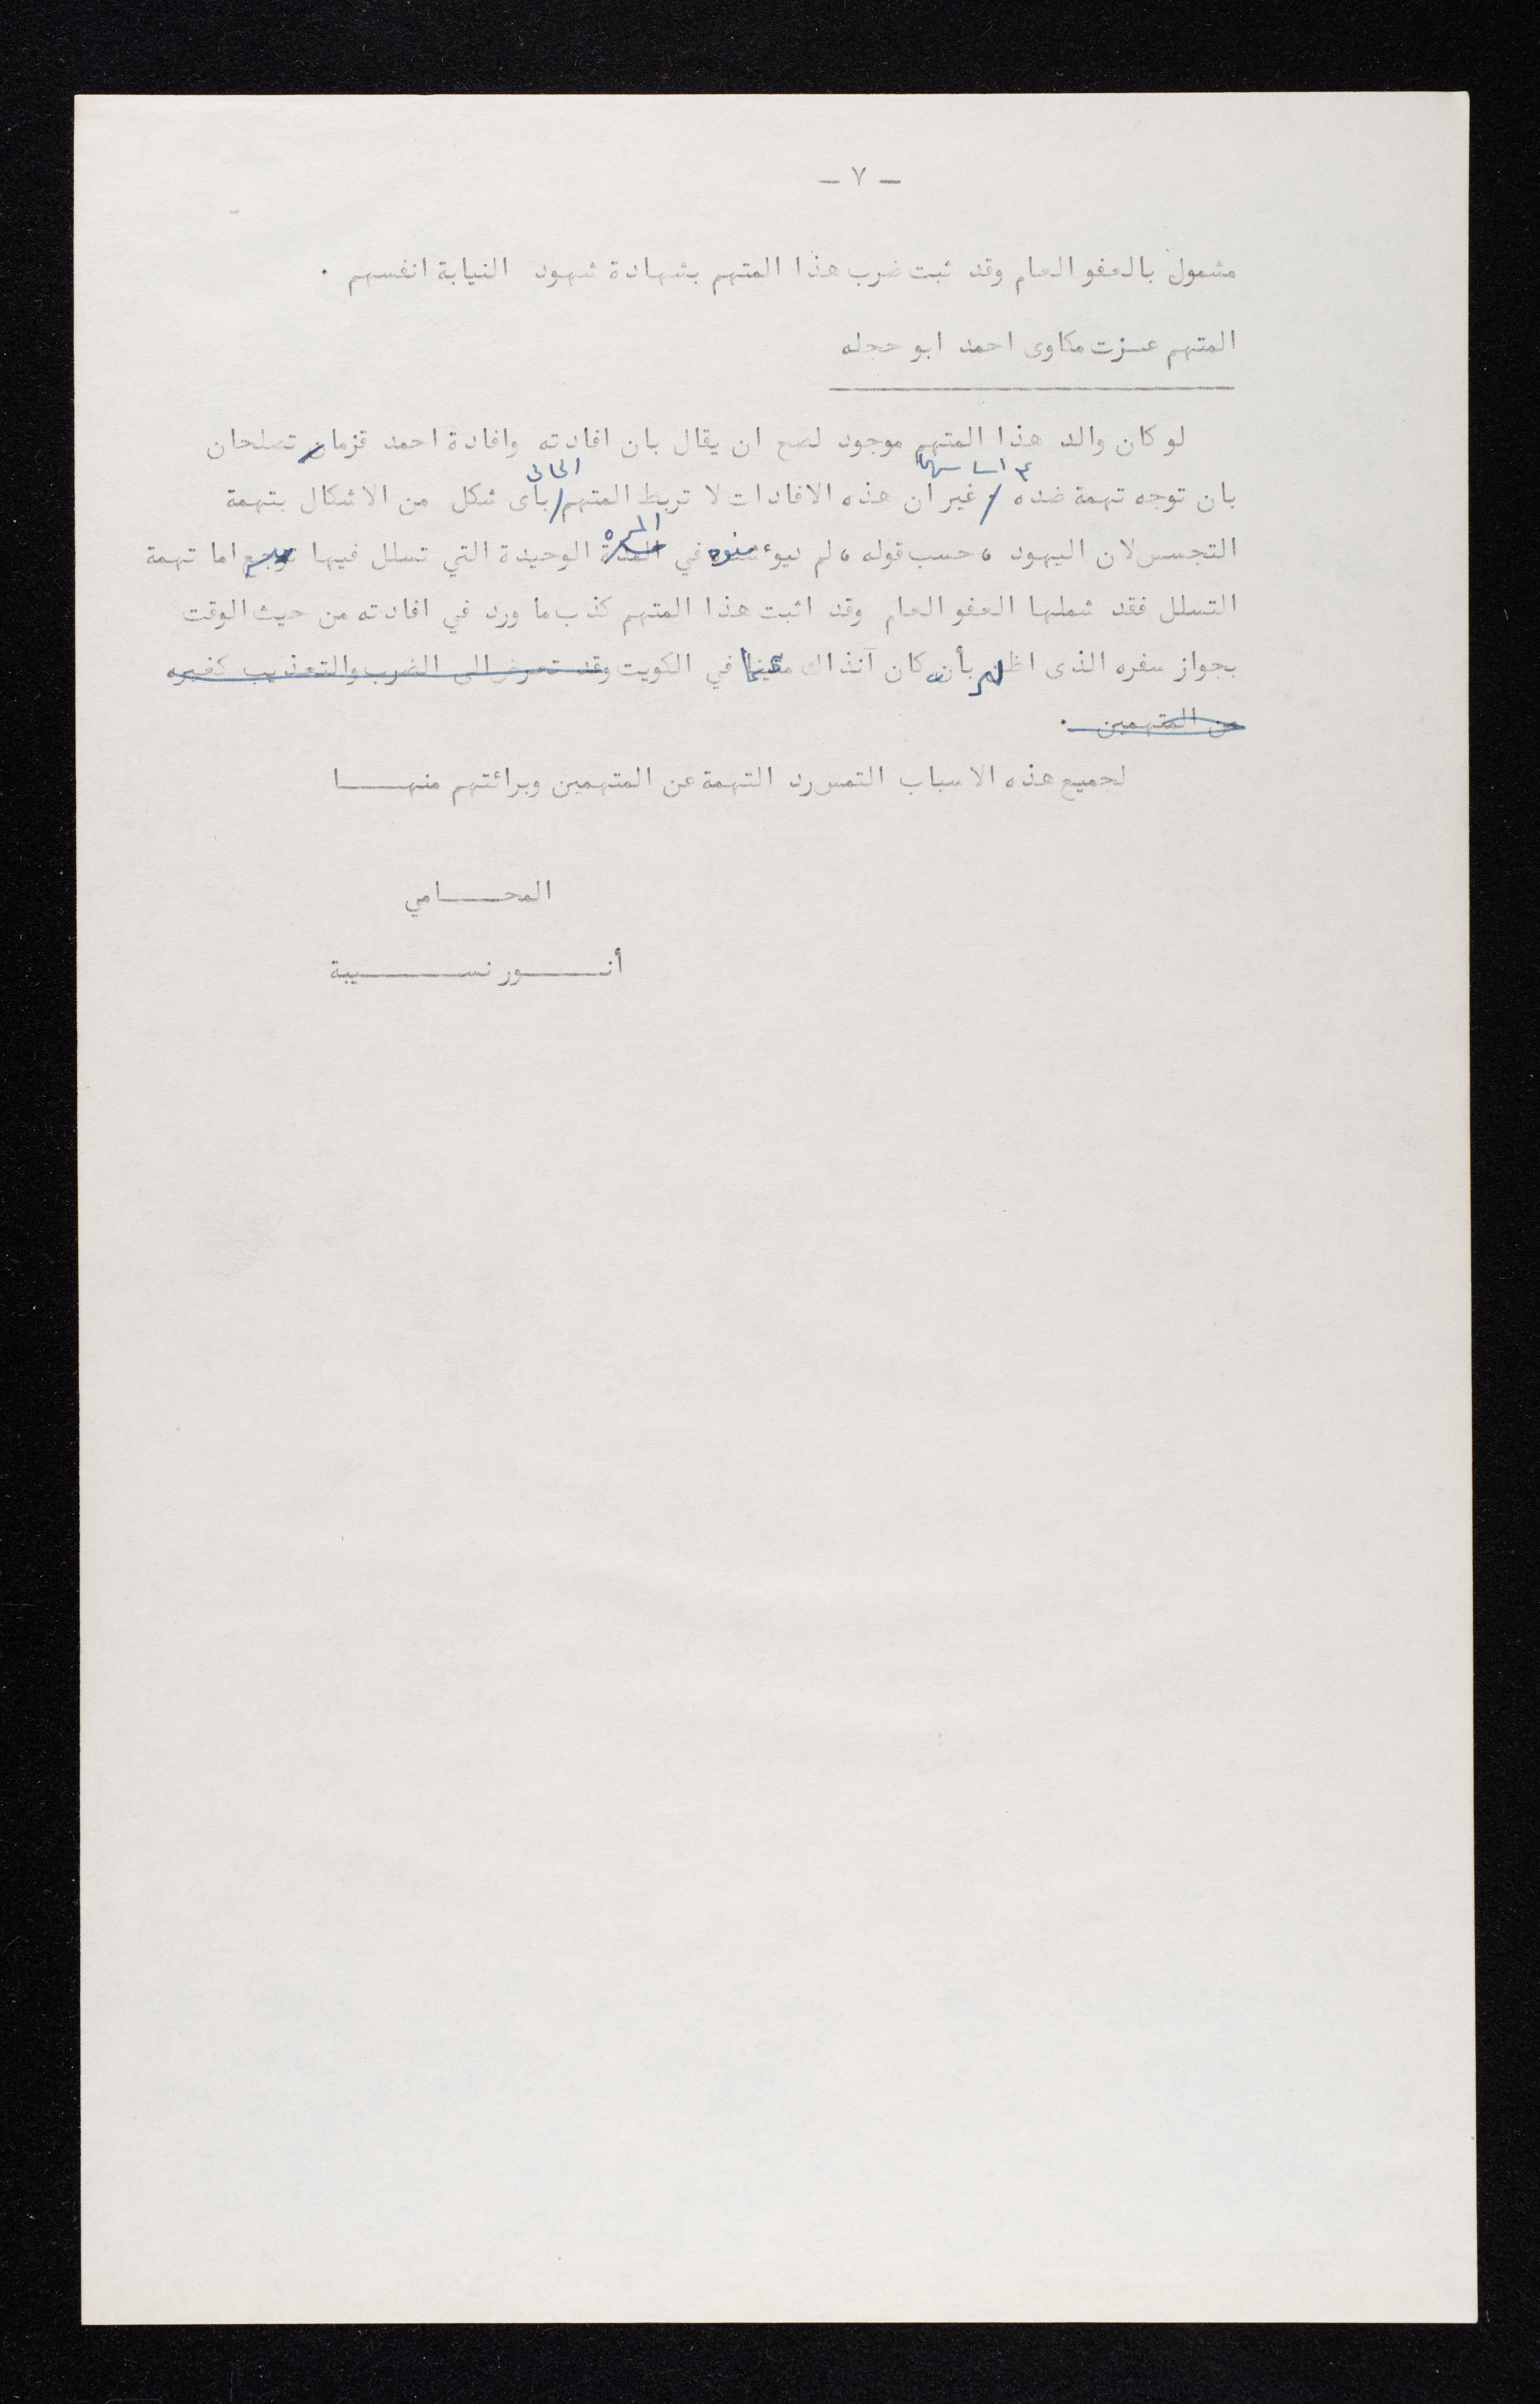 - ٧ -
مشمول بالعفو العام وقد ثبت ضرب هذا المتهم بشهادة شهود النيابة انفسهم .
المتهم عـزت مكاوى احمد ابو حجله
لو كان والد هذا المتهم موجود لصح ان يقال بان افادته وافادة احمد قزمان تصلحان
على اساسهما
الحالى
بان توجه تهمة ضده / غير ان هذه الافادات لا تربط المتهم / باى شكل من الاشكال بتهمة
المره
التجسس لان اليهود ، حسب قوله ، لم يوءمنوه في المدة الوحيدة التي تسلل فيها اما تهمة
التسلل فقد شملها العفو العام وقد اثبت هذا المتهم كذب ما ورد في افادته من حيث الوقت
بجواز سفره الذى اظهر بأنه كان آنذاك مقيما في الكويت وقد تعرض الى الضرب والتعذيب كغيره
من المتهمين .
لجميع هذه الاسباب التمس رد التهمة عن المتهمين وبرائتهم منهـــا
المحـــامي
أنـــور نســـيبة